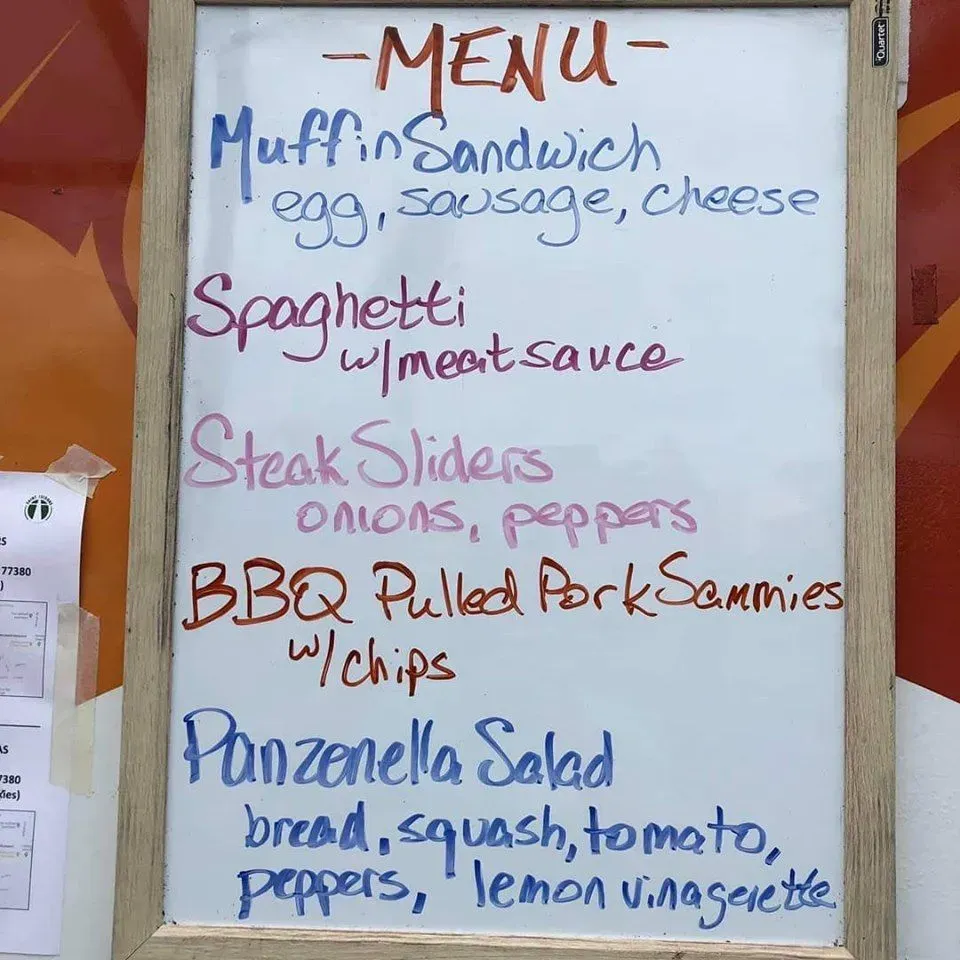 -MENU-
Quartet
Muffin Sandwich
egg, sausage, cheese
Spaghetti
w/meat sauce
Steak Sliders
onions, peppers
BBQ Pulled Pork Sammies
w/chips
Panzenella Salad
bread, squash, tomato,
peppers, lemon vinagerette
RS
77380
)
AS
7380